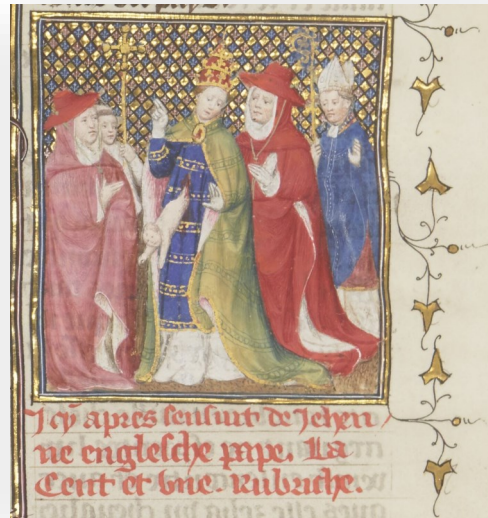 Icy apres sensuit de Jehen
ne englesche pape. La
Cent et vne. Rubriche.